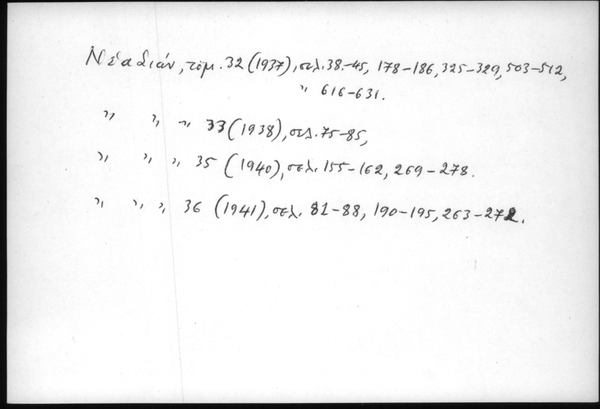 Νέα Σιών, τόμ. 32 (1937), σελ. 38-45, 178-186, 325-329, 503-512,
" 616-631.
" " " 33 (1938), σελ. 75-85,
" " " 35 (1940), σελ. 155-162, 269-278.
" " " 36 (1941), σελ. 81-88, 190-195, 263-272.